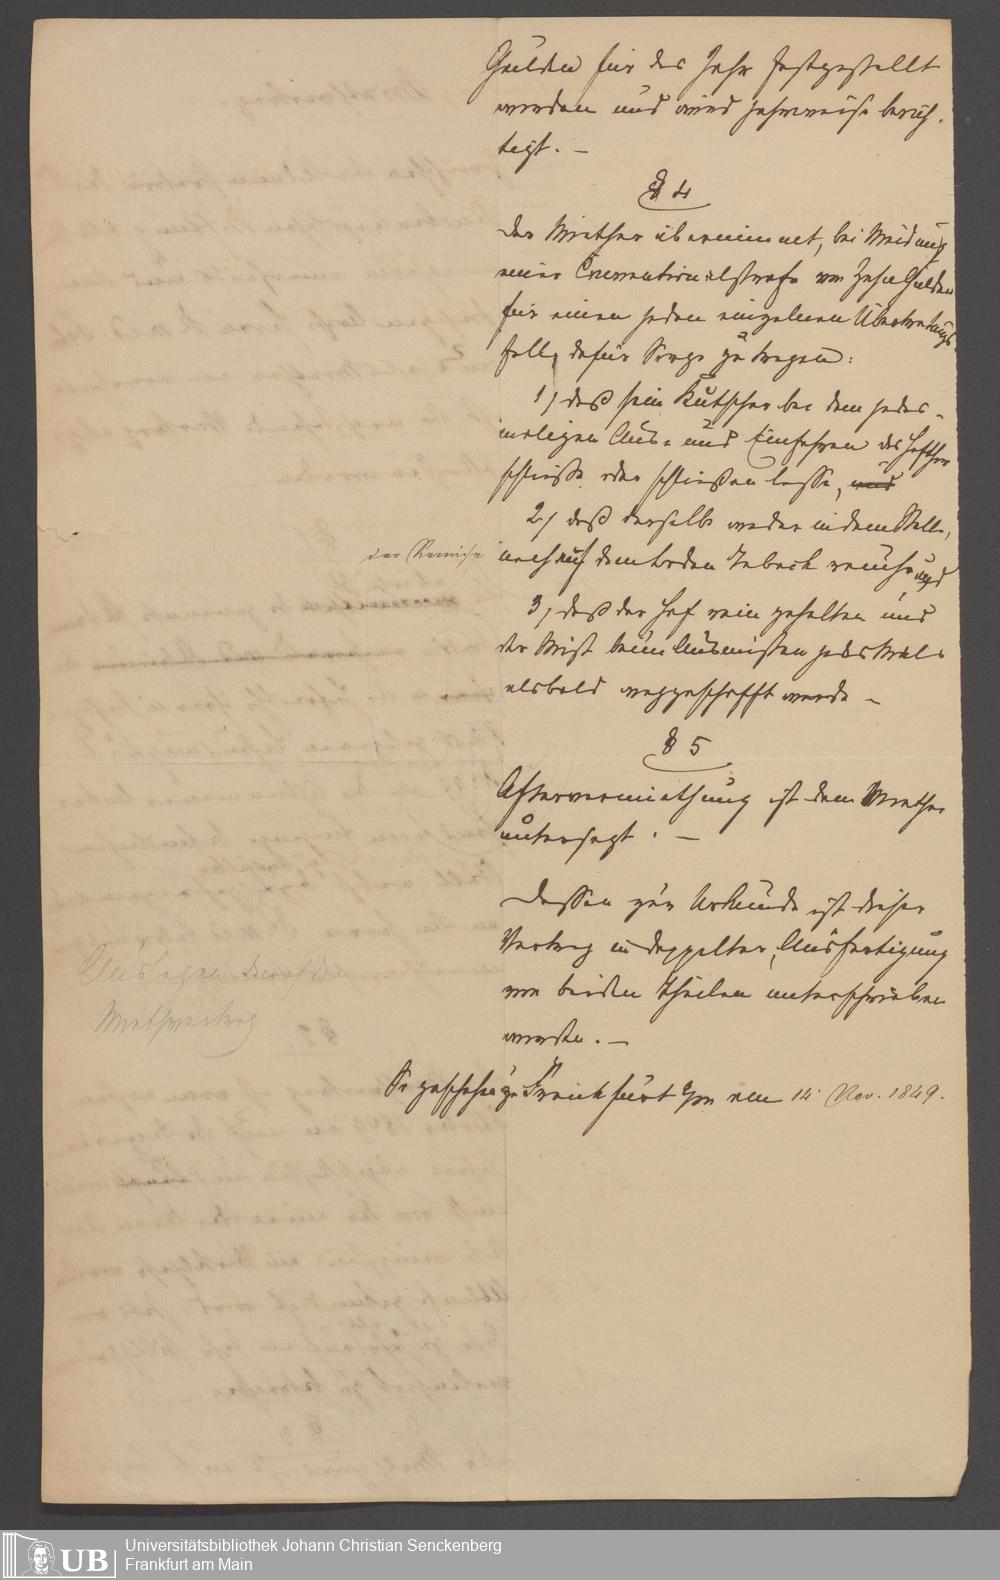 Gulden für das Jahr festgestellt
werden und wird jahrweise berich,
tigt. —
§ 4
Der Miether übernimmt, bei Meidung
einer Conventionalstrafe von Zehn Gulden
für einen jeden einzelnen Übertretungs
fall, dafür Sorge zu tragen:
1, daß sein Kutscher bei dem jedes-
maligen Aus- und Einfahren das Hofthor
schließe oder schließen lasse, und
2, daß derselbe weder in dem Stalle,
der Remise
noch auf dem Boden Taback rauche und
3, daß der Hof rein gehalten und
der Mist beim Ausmisten jedes Mal
alsbald weggeschafft werde –
§ 5
Aftervermiethung ist dem Miether
untersagt. —
Dessen zur Urkunde ist dieser
Vertrag in doppelter Ausfertigung
von beiden Theilen unterschrieben
worden. —
Auslagen durch den
Miethvertrag
So geschehen zu Frankfurt a/m am 14 Nov. 1849.
UB
Universitätsbibliothek Johann Christian Senckenberg
Frankfurt am Main